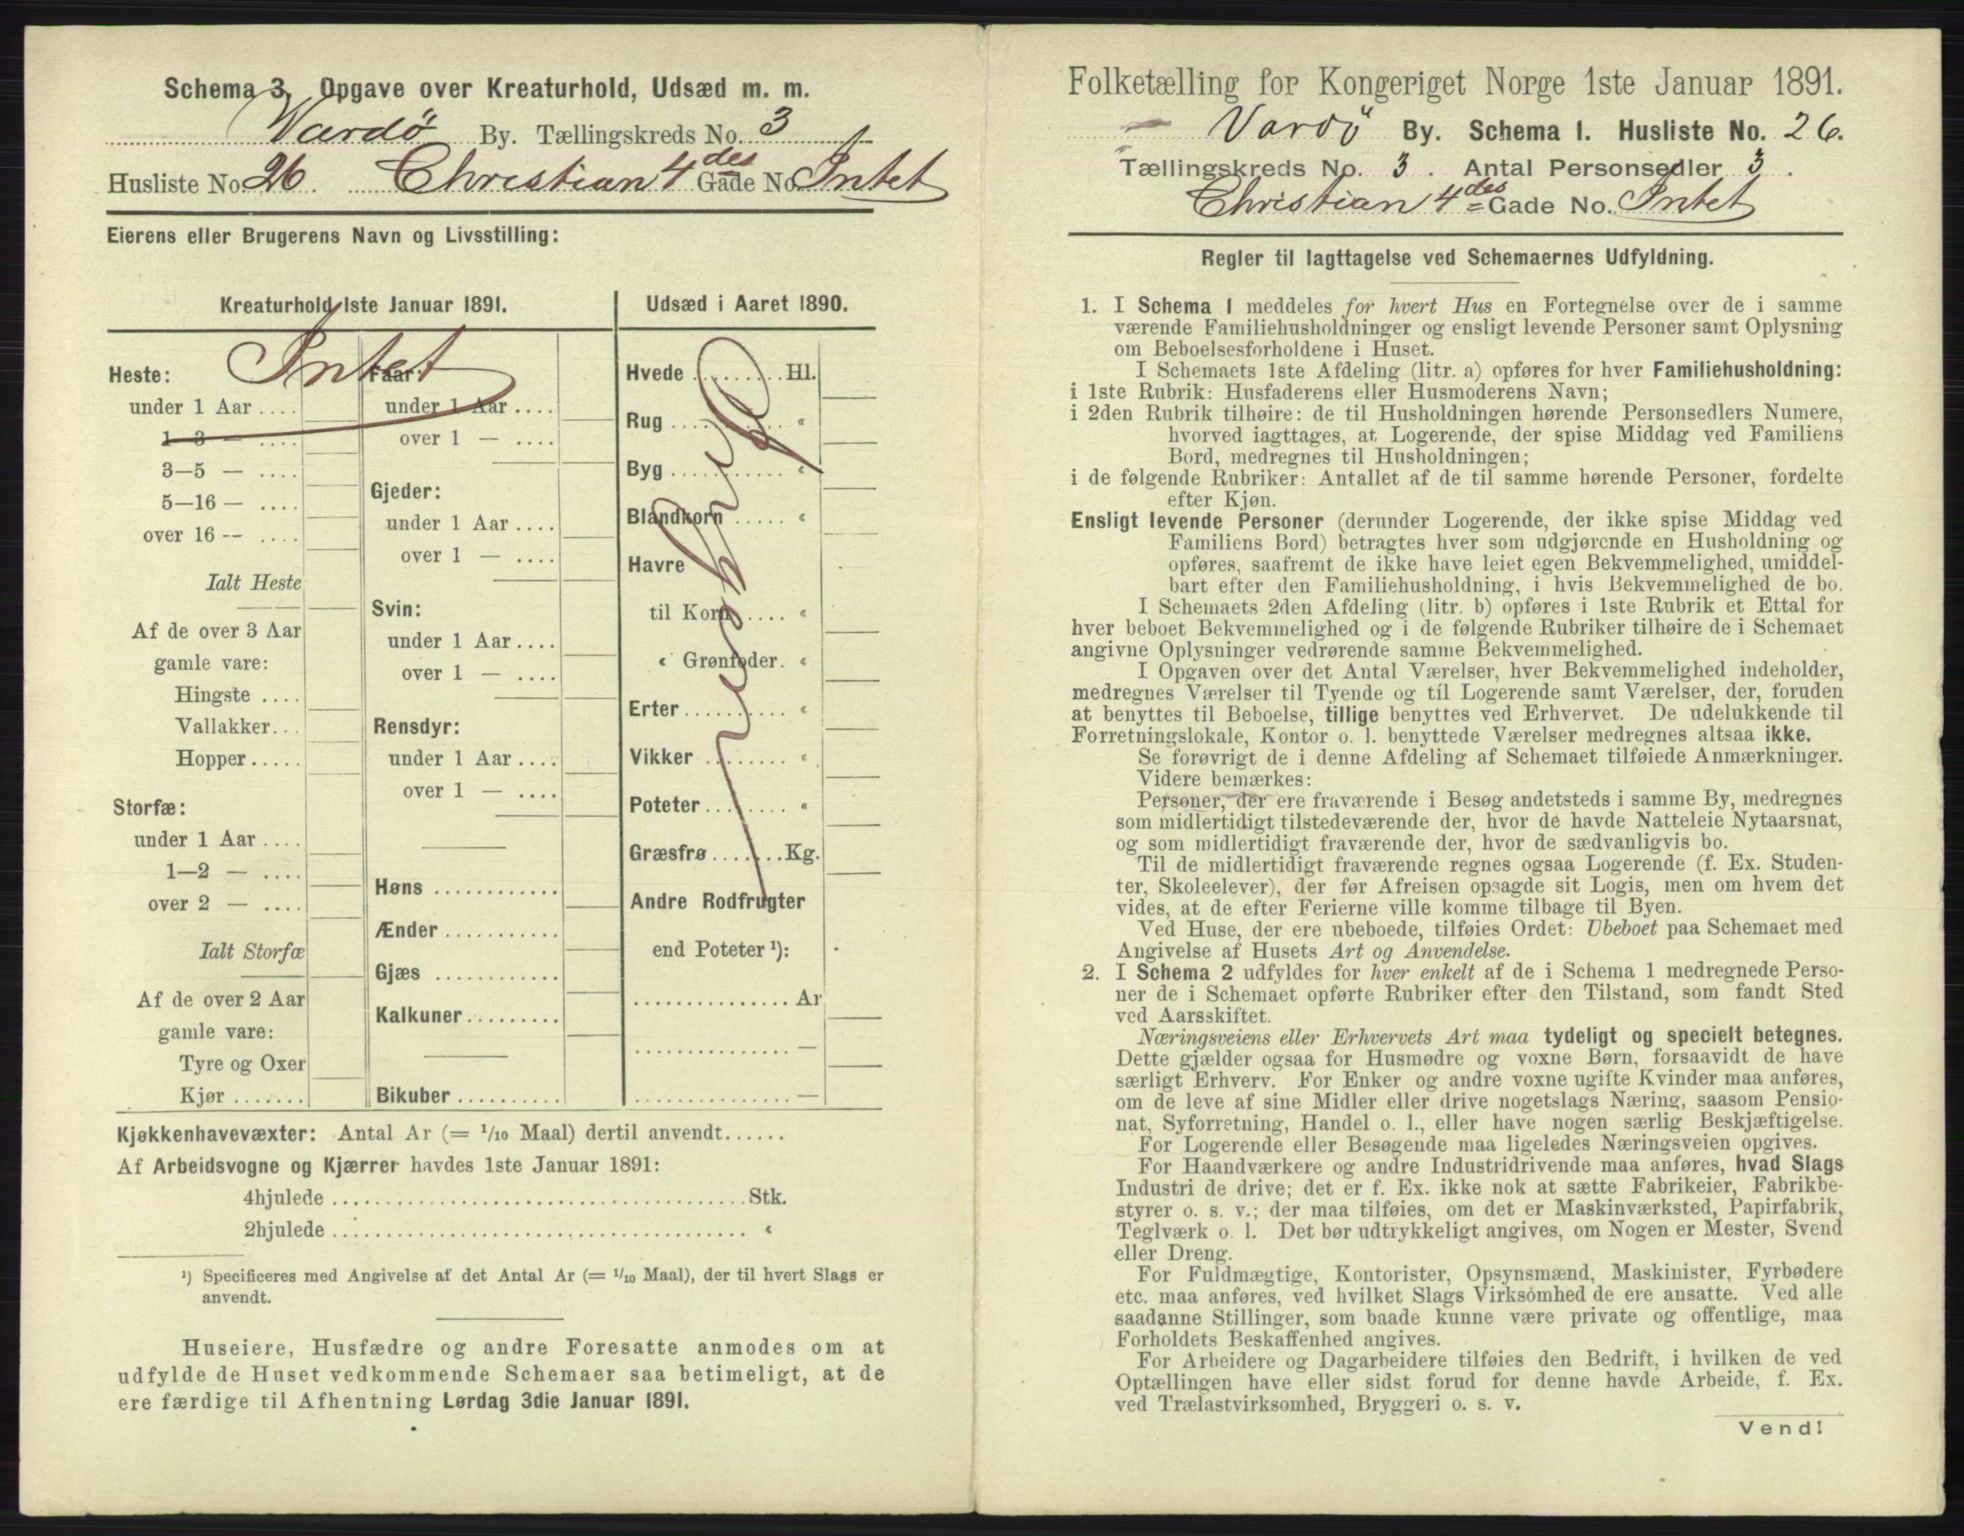 Schema 3. Opgave over Kreaturhold, Udsæd m. m.
Vardø By. Tællingskreds No. 3
Husliste No. 26. Christian 4des Gade No. Intet
Eierens eller Brugerens Navn og Livsstilling:
Kreaturhold 1ste Januar 1891.
Intet
Heste:
under 1 Aar ....
1-3 — ....
3—5 — ....
5—16 — ....
over 16 -- ....
Ialt Heste
Af de over 3 Aar
gamle vare:
Hingste ....
Vallakker...
Hopper.....
Storfæ:
under 1 Aar ....
1—2 — ....
over 2 — ....
Ialt Storfæ
Af de over 2 Aar
gamle vare:
Tyre og Oxer
Kjør .......
Faar:
under 1 Aar ....
over 1 — ....
Gjeder:
under 1 Aar ....
over 1 — ....
Svin:
under 1 Aar....
over 1 — ....
Rensdyr:
under 1 Aar ....
over 1 — ....
Høns ............
Ænder ...........
Gjæs ............
Kalkuner.........
Bikuber ..........
Udsæd i Aaret 1890.
Hvede .........Hl.
Rug .......... «
Byg .......... «
Blandkorn ..... «
Havre
til Korn .... «
« Grønfoder. «
Erter.......... «
Vikker ........ «
Poteter........ «
Græsfrø .......Kg.
Andre Rodfrugter
end Poteter ¹):
............... Ar
............... —
............... —
Kjøkkenhavevæxter: Antal Ar (= 1/10 Maal) dertil anvendt......
Af Arbeidsvogne og Kjærrer havdes 1ste Januar 1891:
4hjulede ........................................Stk.
2hjulede ........................................ «
¹) Specificeres med Angivelse af det Antal Ar (= 1/10 Maal), der til hvert Slags er
anvendt.
Huseiere, Husfædre og andre Foresatte anmodes om at
udfylde de Huset vedkommende Schemaer saa betimeligt, at de
ere færdige til Afhentning Lørdag 3die Januar 1891.
Folketælling for Kongeriget Norge 1ste Januar 1891.
Vardö By. Schema 1. Husliste No. 26.
Tællingskreds No. 3. Antal Personsedler 3.
Christian 4des Gade No. Intet
Regler til Iagttagelse ved Schemaernes Udfyldning.
1. I Schema 1 meddeles for hvert Hus en Fortegnelse over de i samme
værende Familiehusholdninger og ensligt levende Personer samt Oplysning
om Beboelsesforholdene i Huset.
I Schemaets 1ste Afdeling (litr. a) opføres for hver Familiehusholdning:
i 1ste Rubrik: Husfaderens eller Husmoderens Navn;
i 2den Rubrik tilhøire: de til Husholdningen hørende Personsedlers Numere,
hvorved iagttages, at Logerende, der spise Middag ved Familiens
Bord, medregnes til Husholdningen;
i de følgende Rubriker: Antallet af de til samme hørende Personer, fordelte
efter Kjøn.
Ensligt levende Personer (derunder Logerende, der ikke spise Middag ved
Familiens Bord) betragtes hver som udgjørende en Husholdning og
opføres, saafremt de ikke have leiet egen Bekvemmelighed, umiddel-
bart efter den Familiehusholdning, i hvis Bekvemmelighed de bo.
I Schemaets 2den Afdeling (litr. b) opføres i 1ste Rubrik et Ettal for
hver beboet Bekvemmelighed og i de følgende Rubriker tilhøire de i Schemaet
angivne Oplysninger vedrørende samme Bekvemmelighed.
I Opgaven over det Antal Værelser, hver Bekvemmelighed indeholder,
medregnes Værelser til Tyende og til Logerende samt Værelser, der, foruden
at benyttes til Beboelse, tillige benyttes ved Erhvervet. De udelukkende til
Forretningslokale, Kontor o. l. benyttede Værelser medregnes altsaa ikke.
Se forøvrigt de i denne Afdeling af Schemaet tilføiede Anmærkninger.
Videre bemærkes:
Personer, der ere fraværende i Besøg andetsteds i samme By, medregnes
som midlertidigt tilstedeværende der, hvor de havde Natteleie Nytaarsnat,
og som midlertidigt fraværende der, hvor de sædvanligvis bo.
Til de midlertidigt fraværende regnes ogsaa Logerende (f. Ex. Studen-
ter, Skoleelever), der før Afreisen opsagde sit Logis, men om hvem det
vides, at de efter Ferierne ville komme tilbage til Byen.
Ved Huse, der ere ubeboede, tilføies Ordet: Ubeboet paa Schemaet med
Angivelse af Husets Art og Anvendelse.
2. I Schema 2 udfyldes for hver enkelt af de i Schema 1 medregnede Perso-
ner de i Schemaet opførte Rubriker efter den Tilstand, som fandt Sted
ved Aarsskiftet.
Næringsveiens eller Erhvervets Art maa tydeligt og specielt betegnes.
Dette gjælder ogsaa for Husmødre og voxne Børn, forsaavidt de have
særligt Erhverv. For Enker og andre voxne ugifte Kvinder maa anføres,
om de leve af sine Midler eller drive nogetslags Næring, saasom Pensio-
nat, Syforretning, Handel o. l., eller have nogen særlig Beskjæftigelse.
For Logerende eller Besøgende maa ligeledes Næringsveien opgives.
For Haandværkere og andre Industridrivende maa anføres, hvad Slags
Industri de drive; det er f. Ex. ikke nok at sætte Fabrikeier, Fabrikbe-
styrer o. s. v.; der maa tilføies, om det er Maskinværksted, Papirfabrik,
Teglværk o. l. Det bør udtrykkeligt angives, om Nogen er Mester, Svend
eller Dreng.
For Fuldmægtige, Kontorister, Opsynsmænd, Maskinister, Fyrbødere
etc. maa anføres, ved hvilket Slags Virksomhed de ere ansatte. Ved alle
saadanne Stillinger, som baade kunne være private og offentlige, maa
Forholdets Beskaffenhed angives.
For Arbeidere og Dagarbeidere tilføies den Bedrift, i hvilken de ved
Optællingen have eller sidst forud for denne havde Arbeide, f. Ex.
ved Trælastvirksomhed, Bryggeri o. s. v.
Vend!